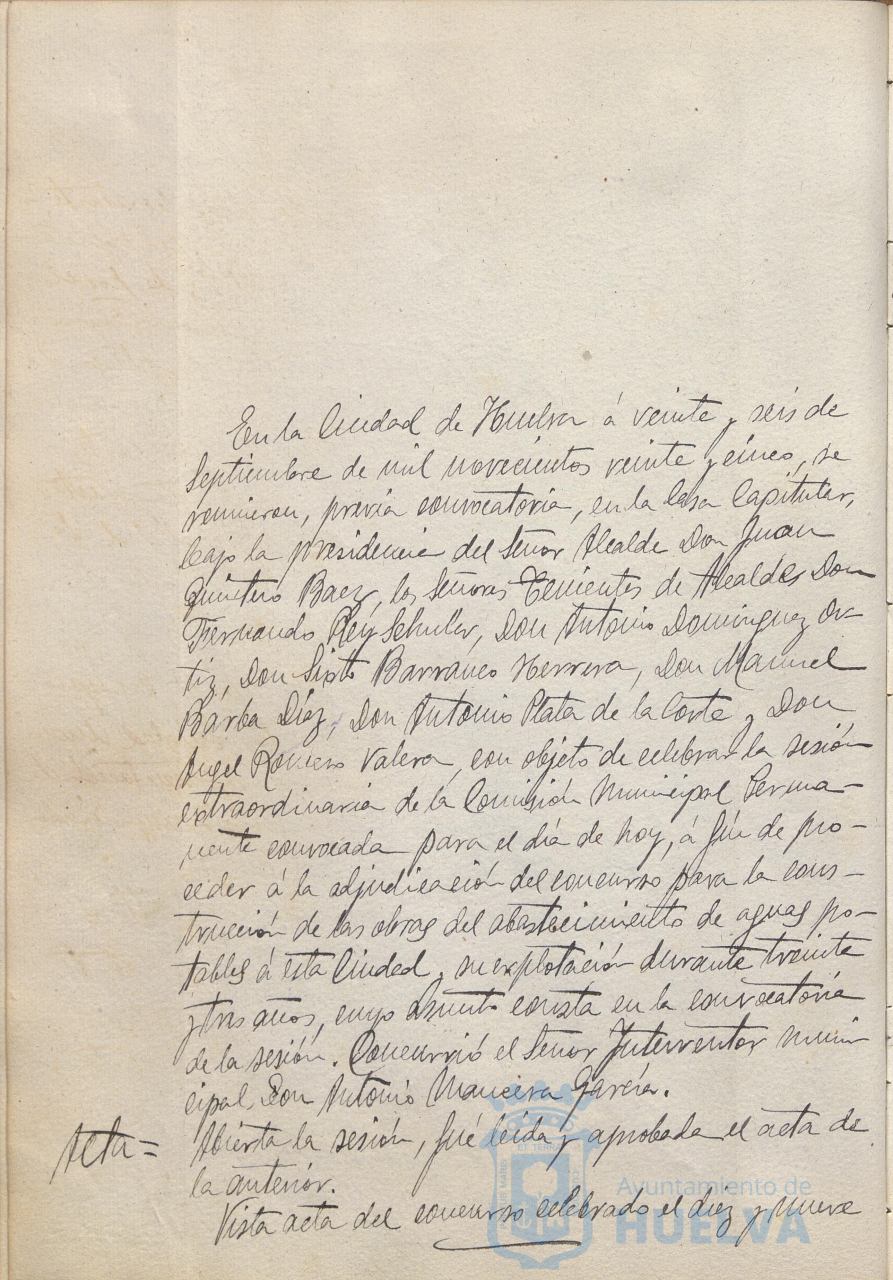 En la Ciudad de Huelva á veinte y seis de
Septiembre de mil novecientos veinte y cinco, se
reunieron, previa convocatoria, en la Casa Capitular,
bajo la presidencia del Señor Alcalde Don Juan
Quintero Baez, los Señores Tenientes de Alcaldes Don
Fernando Rey Schuler, Don Antonio Dominguez Or-
tiz, Don Sixto Barranco Herrera, Don Manuel
Barba Díaz, Don Antonio Plata de la Corte y Don
Angel Romero Valera, con objeto de celebrar la sesión
extraordinaria de la Comisión Municipal Perma-
nente convocada para el día de hoy, á fín de pro-
ceder á la adjudicación del concurso para la cons-
trucción de las obras del abastecimiento de aguas po-
tables á esta Ciudad y su explotación durante treinta
y tres años, cuyo asunto consta en la convocatoria
de la sesión. Concurrió el Señor Interventor muni-
cipal Don Antonio Mancera García.
Acta= Abierta la sesión, fué leída y aprobada el acta de
la anterior.
Vista acta del concurso celebrado el diez y nueve
Ayuntamiento de
HUELVA